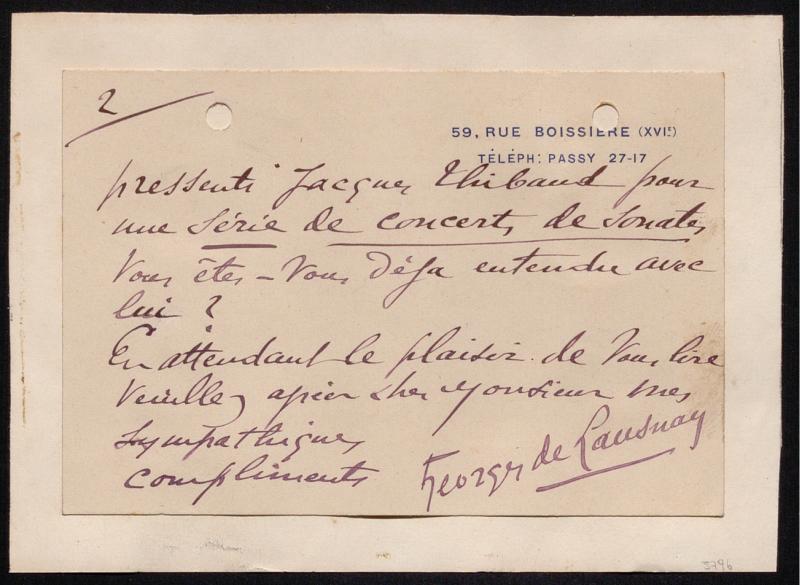 2
59, RUE BOISSIÈRE (XVIE)
TÉLÉPH: PASSY 27-17
pressenti Jacques Thibaud pour
une série de concerts de Sonates
Vous êtes-vous déja entendu avec
lui ?
En attendant le plaisir de vous lire
Veuillez agréer cher Monsieur mes
sympathiques
compliments
Georges de Lausnay
3796